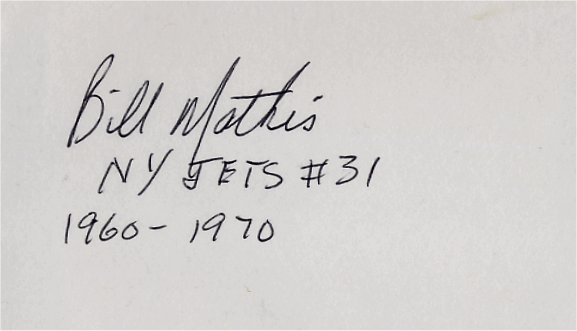 Bill Mathis
NY JETS #31
1960-1970